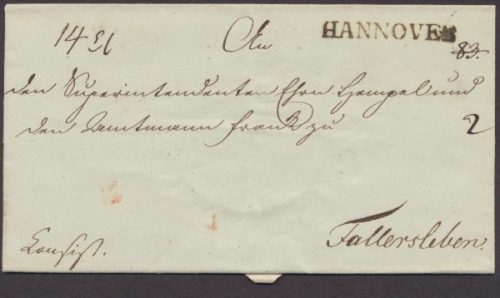 14 Sl
An
HANNOVER
83.
den Superintendenten Ehrn Hempel und
den Amtmann Frank zu
2
Fallersleben.
Consist.